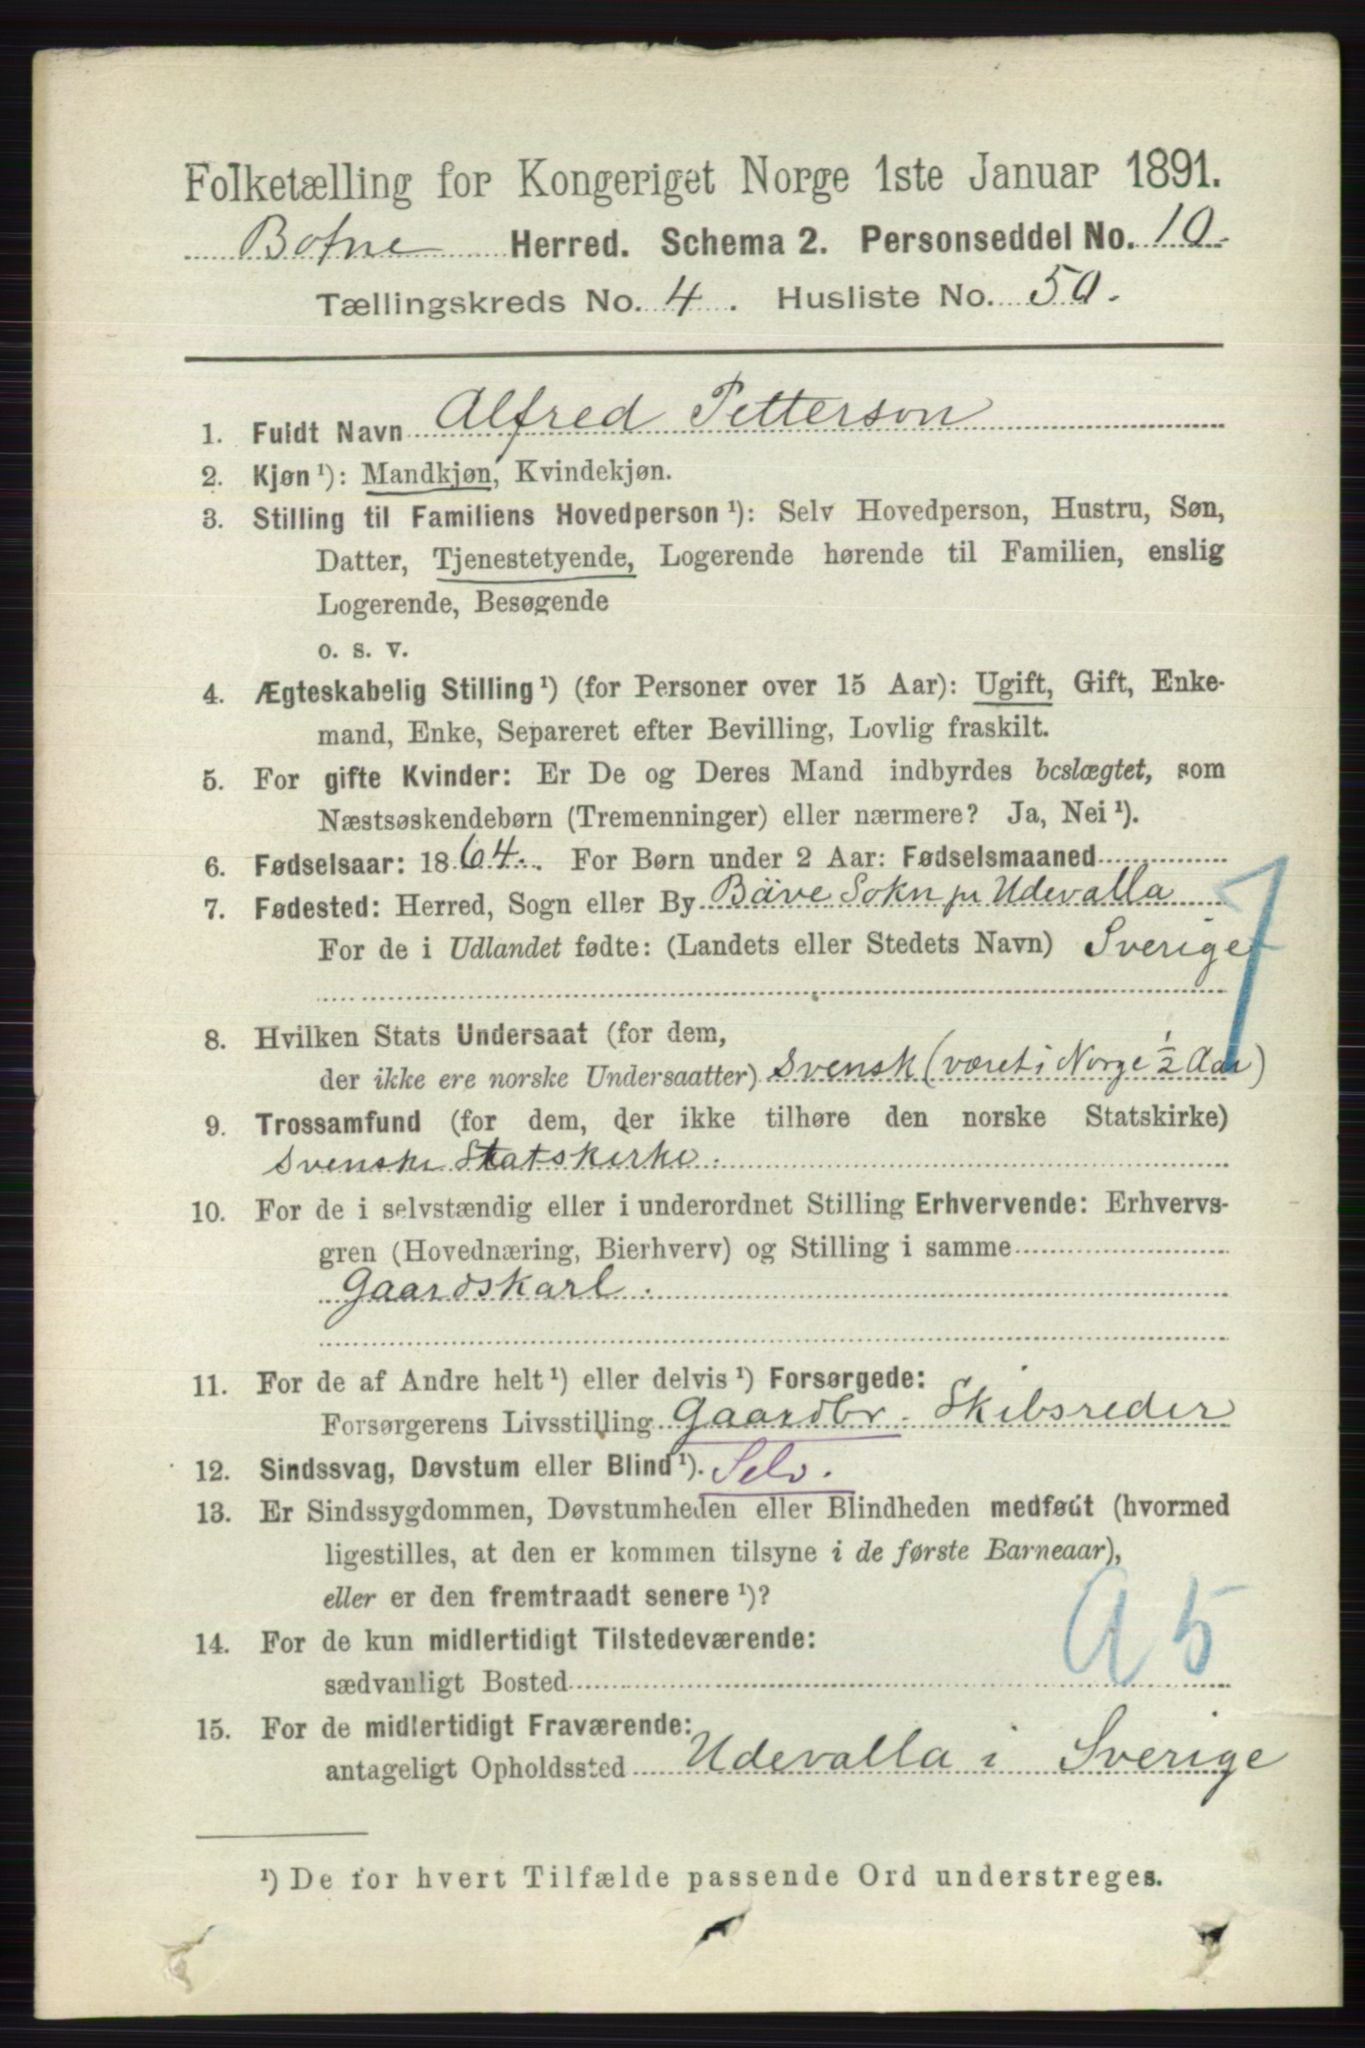 Folketælling for Kongeriget Norge 1ste Januar 1891.
Botne Herred. Schema 2. Personseddel No. 10.
Tællingskreds No. 4. Husliste No. 50.
1. Fuldt Navn Alfred Petterson
2. Kjøn¹): Mandkjøn, Kvindekjøn.
3. Stilling til Familiens Hovedperson¹): Selv Hovedperson, Hustru, Søn,
Datter, Tjenestetyende, Logerende hørende til Familien, enslig
Logerende, Besøgende
o. s. v.
4. Ægteskabelig Stilling¹) (for Personer over 15 Aar): Ugift, Gift, Enke-
mand, Enke, Separeret efter Bevilling, Lovlig fraskilt.
5. For gifte Kvinder: Er De og Deres Mand indbyrdes beslægtet, som
Næstsøskendebørn (Tremenninger) eller nærmere? Ja, Nei¹).
6. Fødselsaar: 1864. For Børn under 2 Aar: Fødselsmaaned
7. Fødested: Herred, Sogn eller By Bäve Sokn pr Udevalla
For de i Udlandet fødte: (Landets eller Stedets Navn) Sverige
7
8. Hvilken Stats Undersaat (for dem,
der ikke ere norske Undersaatter) Svensk (været i Norge ½ Aar)
9. Trossamfund (for dem, der ikke tilhøre den norske Statskirke)
Svenske Statskirke.
10. For de i selvstændig eller i underordnet Stilling Erhvervende: Erhvervs-
gren (Hovednæring, Bierhverv) og Stilling i samme
Gaardskarl.
11. For de af Andre helt¹) eller delvis¹) Forsørgede:
Forsørgerens Livsstilling Gaardbr. Skibsreder
12. Sindssvag, Døvstum eller Blind¹). Selv.
13. Er Sindssygdommen, Døvstumheden eller Blindheden medfødt (hvormed
ligestilles, at den er kommen tilsyne i de første Barneaar),
eller er den fremtraadt senere¹)?
A 5
14. For de kun midlertidigt Tilstedeværende:
sædvanligt Bosted
15. For de midlertidigt Fraværende:
antageligt Opholdssted Udevalla i Sverige
¹) De for hvert Tilfælde passende Ord understreges.